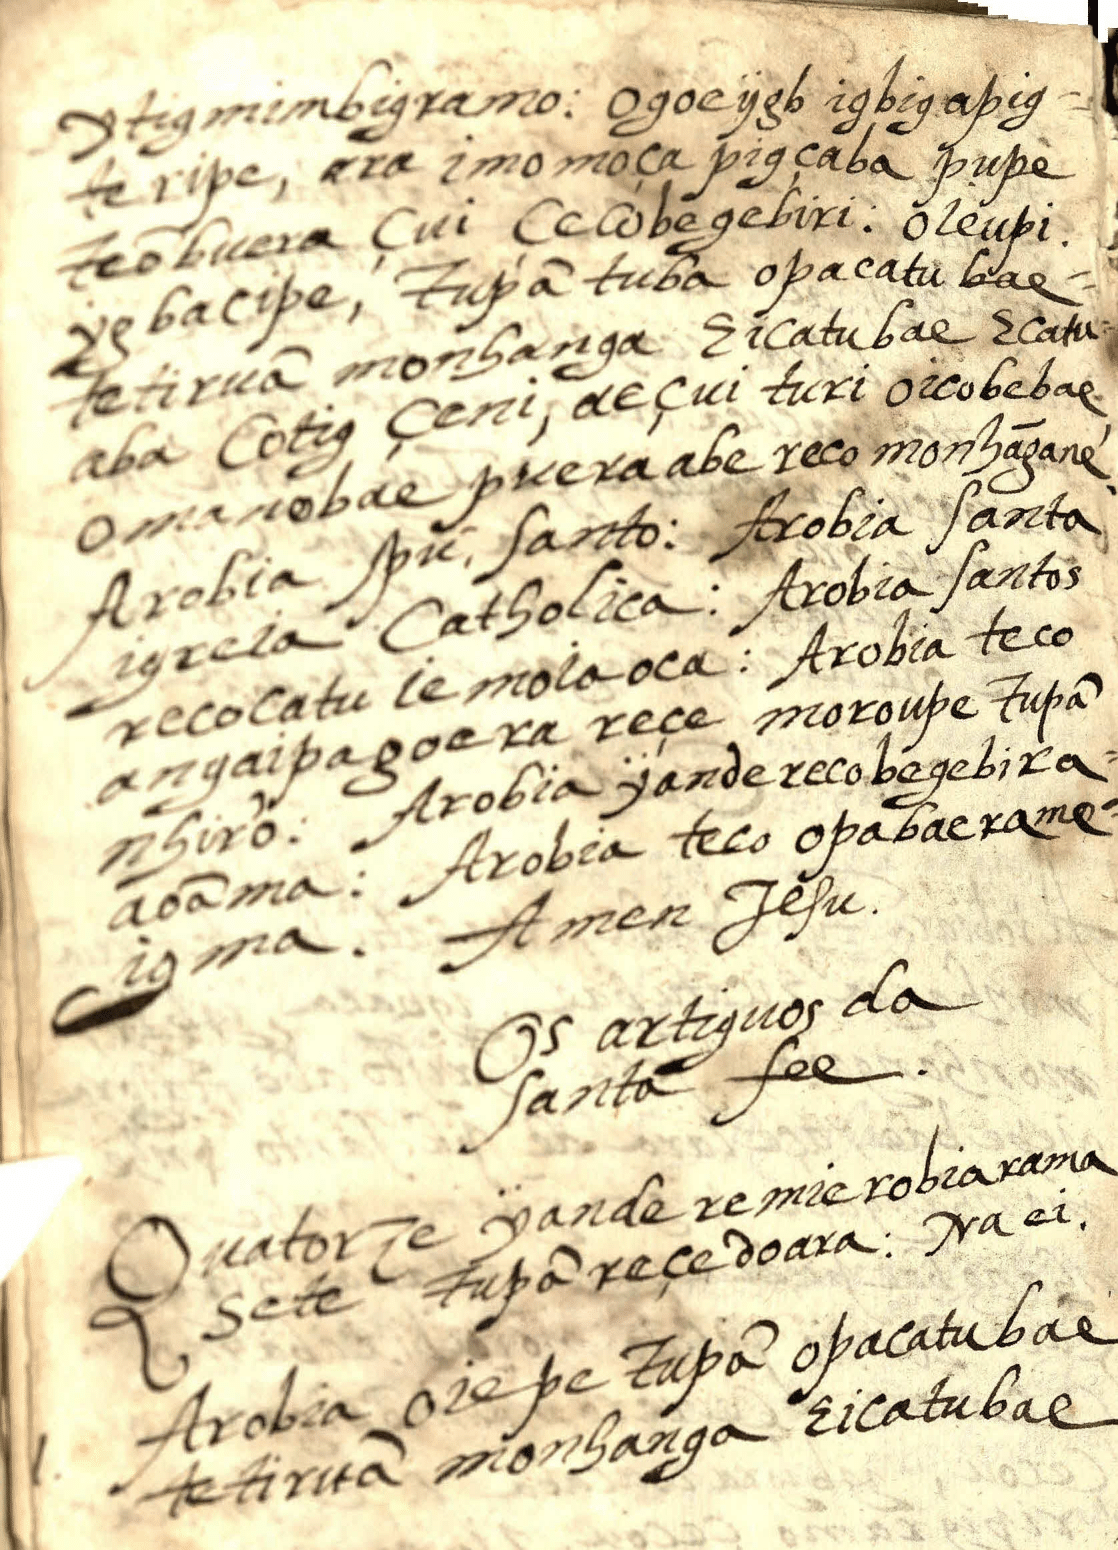 ytigmimbigramo: ogoeÿgb igbigapig-
teripe, ara imomoça pigçaba pupe
teõbuera çui çecobegebiri: oieupi.
ygbacipe, Tupã tuba opacatu bae-
tetiruã monhanga Eicatubae Ecatu-
aba cotig çeni, aeçui turi oicobebae
omanobae puera abe reco monhãgané.
Arobia Spũ. Santo: Arobia Santa
igreia Catholica: Arobia Santos
recocatu iemoiaoca: Arobia teco
angaipagoera reçe moroupe Tupã
nhirõ: Arobia ÿanderecobegebira-
aoãma: Arobia teco opabaerame-
igma. Amen Jesu.
Os artiguos da
Santa fee.
Quatorze ÿande remierobiarama
Sete tupã reçedoara: Na ei.
Arobia oiepe Tupã opacatubae
1. tetiruã monhanga Eicatubae